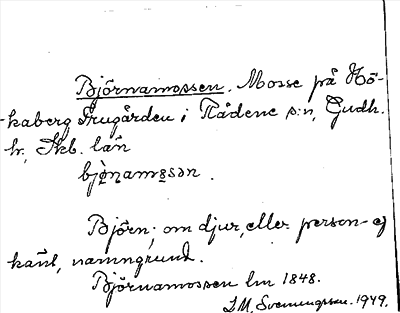 Björnamossen. Mosse på Hö-
kaberg Frugården i Flådene s:n, Gudh.
hr, Skb. län
bjö̀ṇamøsən.
Björn; om djur, eller person- ej
känt, namngrund.
Björnamossen lm 1848.
I.M. Svenungsson. 1949.